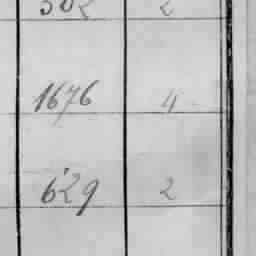 302 2
1676 4
629 2